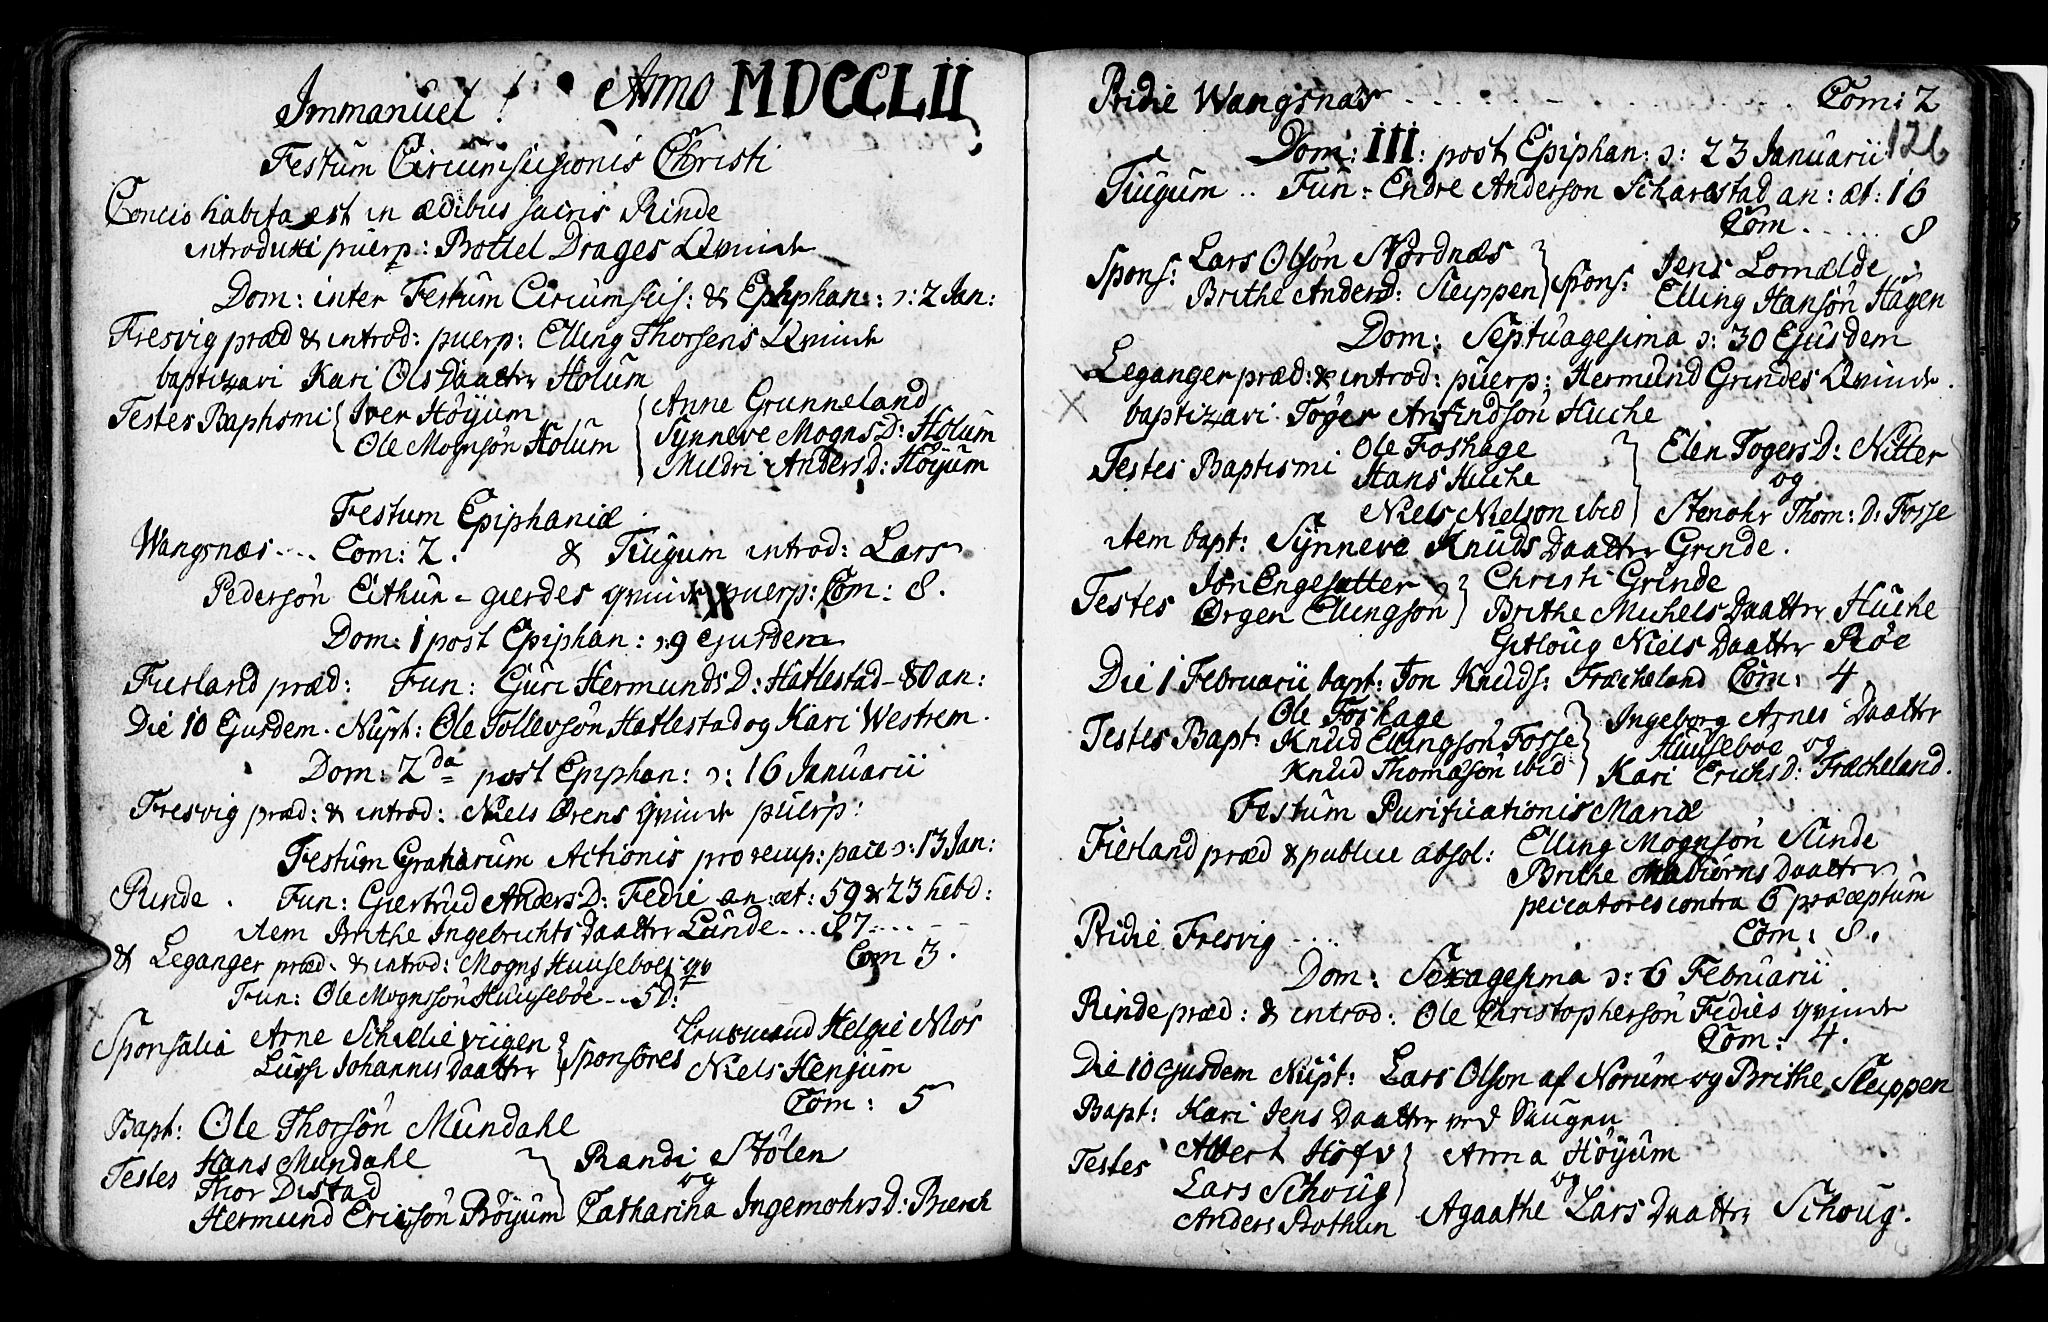 Immanuel! Anno MDCCLII
Festum Circumsisionis Christi
Concio habita est in ædibus sacris Rinde
introduxi puerp: Bottel Drages Qvinde
Dom: inter Festum Circumscis: & Epiphan: ɔ: 2 Jan:
Fresvig præd & introd: puerp: Elling Thorsens Qvinde
baptizavi Kari Ols Daatter Holum
Testes Baptismi { Iver Höÿum { Anne Grunneland
Ole Mognsön Holum Synneve Mogns D: Holum
Mildri Anders D: Höÿum
Festum Epiphaniæ
Wangsnæs --- Com: 2. & Tiugum introd: Lars
Pedersön Eithun-gierdes qvinde puerp: Com: 8.
Dom: 1 post Epiphan: ɔ: 9 ejusdem
Fierland præd: Fun: Guri Hermunds D: Hatlestad - 80 an:
Die 10 Ejusdem. Nupt: Ole Tollevsön Hatlestad og Kari Westrem.
Dom: 2da post Epiphan: ɔ: 16 Januarii
Fresvig præd: & introd: Niels Ørens qvinde puerp:
Festum Gratiarum Actionis pro recup: pace ɔ: 13 Jan:
Rinde. Fun: Giertrud Anders D: Fedie an: æt: 59 & 23 hebd:
item Brithe Ingebrichts Daatter Lunde ... 87 ...
& Leganger præd. & introd: Mogns Huuseboes qv Com 3.
Fun: Ole Mognssön Huuseböe -- 5 D:
Sponsalia Arne Schielieviigen } Sponsores Helgie Mös
Lussi Johannis Daatter Niels Henjum
Com: 5
Bapt: Ole Thorsön Mundahl
Testes Hans Mundahl } Randi Stölen
Thor Distad og
Hermund Ericsön Böÿum Catharina Ingemohrs D: Bærch
Pridie Wangsnæs - - - - - Com: 2
126
Dom: III: post Epiphan: ɔ: 23 Januarii
Tiugum .. Fun: Endre Anderson Scharestad an: æt: 16
Com ..... 8
Spons: Lars Olsön Nordnæs } Spons: Jens Lomælde
Brithe Andersd: Sleppen Elling Hansön Hagen
Dom: Septuagesima ɔ: 30 Ejusdem
Leganger præd: & introd: puerp: Hermund Grindes Qvinde.
baptizavi Töger Anfindsön Huche
Testes Baptismi Ole Foshage } Elen Togers D: Nitter
Hans Huche og
Niels Nielson ibid Stenohr Thom: D: Fosse
item bapt: Synneve Knuds Daatter Grinde.
Testes Jon Engesætter } Christi Grinde
Ørgen Ellingson Brithe Michels Daatter Huche
Gitloug Niels Daatter Röe
Die 1 Februarii bapt: Jon Knuds: Fræcheland Com: 4
Testes Bapt: Ole Foshage } Ingeborg Arnes Daatter
Knud Ellingsön Fosse Huuseböe og
Knud Thomæsön ibid Kari Erichs D: Fræcheland.
Festum Purificationis Mariæ
Fierland præd & publice absol: Elling Mognsön Slinde
Brithe Abiörns Daatter
peccatores contra 6 præceptum
Pridie Fresvig ..... Com: 8.
Dom: Sexagesima ɔ: 6 Februarii
Rinde præd: & introd: Ole Christophersön Fedies qvinde
Com: 4.
Die 10 ejusdem Nupt: Lars Olson af Norum og Brithe Sleppen
Bapt: Kari Jens Daatter ved Saugen
Testes Albert Hofv } Anna Höÿum
Lars Schoug og
Anders Rothun Agaathe Lars Daatter Schoug.